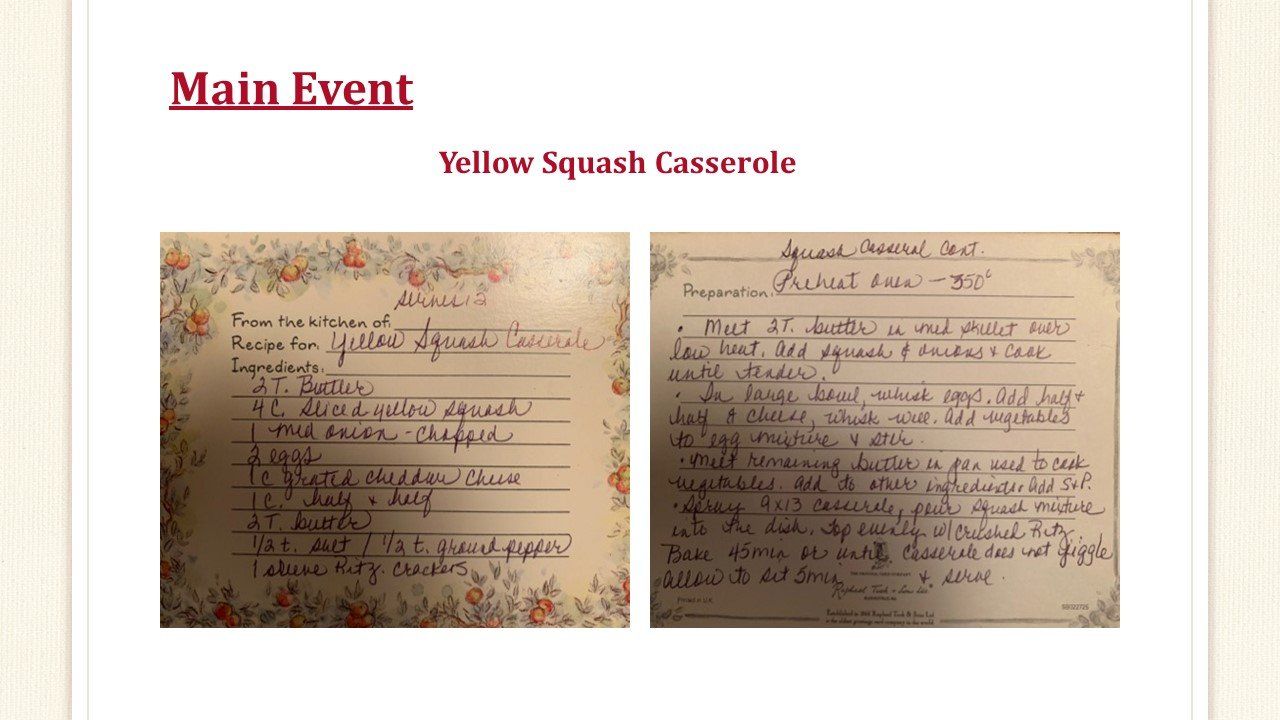 Main Event
Yellow Squash Casserole
serves 12
From the kitchen of:
Recipe for: Yellow Squash Casserole
Ingredients:
2 T. Butter
4 C. sliced yellow squash
1 med onion - chopped
2 eggs
1 c grated cheddar cheese
1 C. half & half
2 T. butter
1/2 t. salt / 1/2 t. ground pepper
1 sleeve Ritz crackers
Squash Casseral Cont.
Preparation: Preheat oven - 350°
• Melt 2T. butter in med skillet over
low heat. Add squash & onions & cook
until tender.
• In large bowl, whisk eggs. Add half &
half & cheese, whisk well. Add vegetables
to egg mixture & stir.
• Melt remaining butter in pan used to cook
vegetables. Add to other ingredients. Add S&P.
• Spray 9x13 casserole, pour squash mixture
into the dish. Top evenly w/ crushed Ritz.
Bake 45min or until casserole does not jiggle
allow to sit 5min & serve.
Raphael Tuck & Sons Ltd.
Printed in U.K.
Established in 1866 Raphael Tuck & Sons Ltd
is the oldest greeting card company in the world